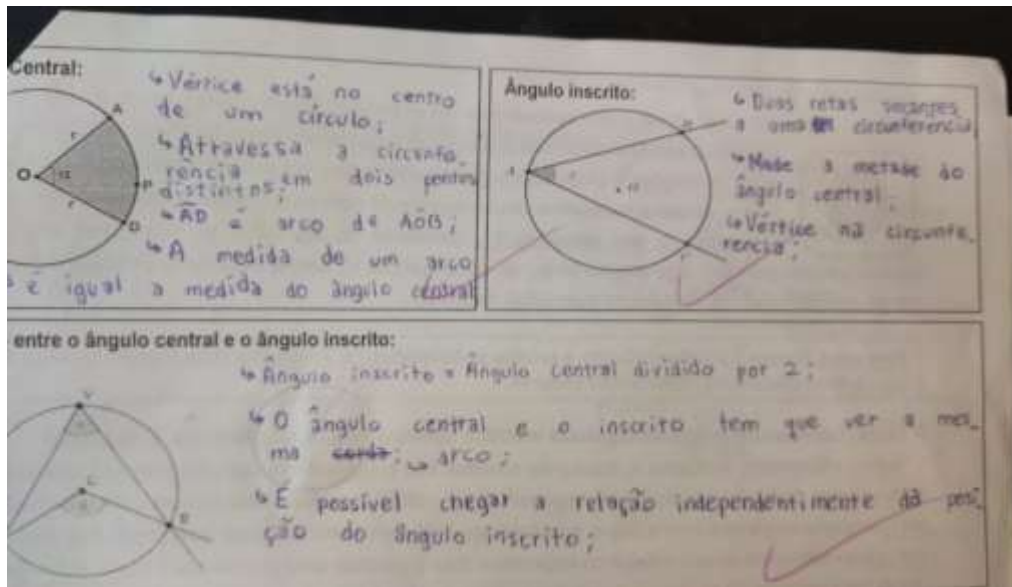 Central:
↳ Vértice está no centro
de um círculo;
↳ Atravessa a circunfe_
rência em dois pontos
distintos;
↳ AD é arco de AÔB;
↳ A medida de um arco
é igual a medida do ângulo central
A
r
O
α
P
r
Ângulo inscrito:
↳ Duas retas secantes
a uma circunferencia
↳ Mede a metade do
ângulo central;
↳ Vértice na circunfe_
rencia;
entre o ângulo central e o ângulo inscrito:
↳ Ângulo inscrito = Ângulo central dividido por 2;
↳ O ângulo central e o inscrito tem que ver a mes_
mo corda; arco;
↳ É possível chegar a relação independentimente da posi_
ção do ângulo inscrito;
V
C
B